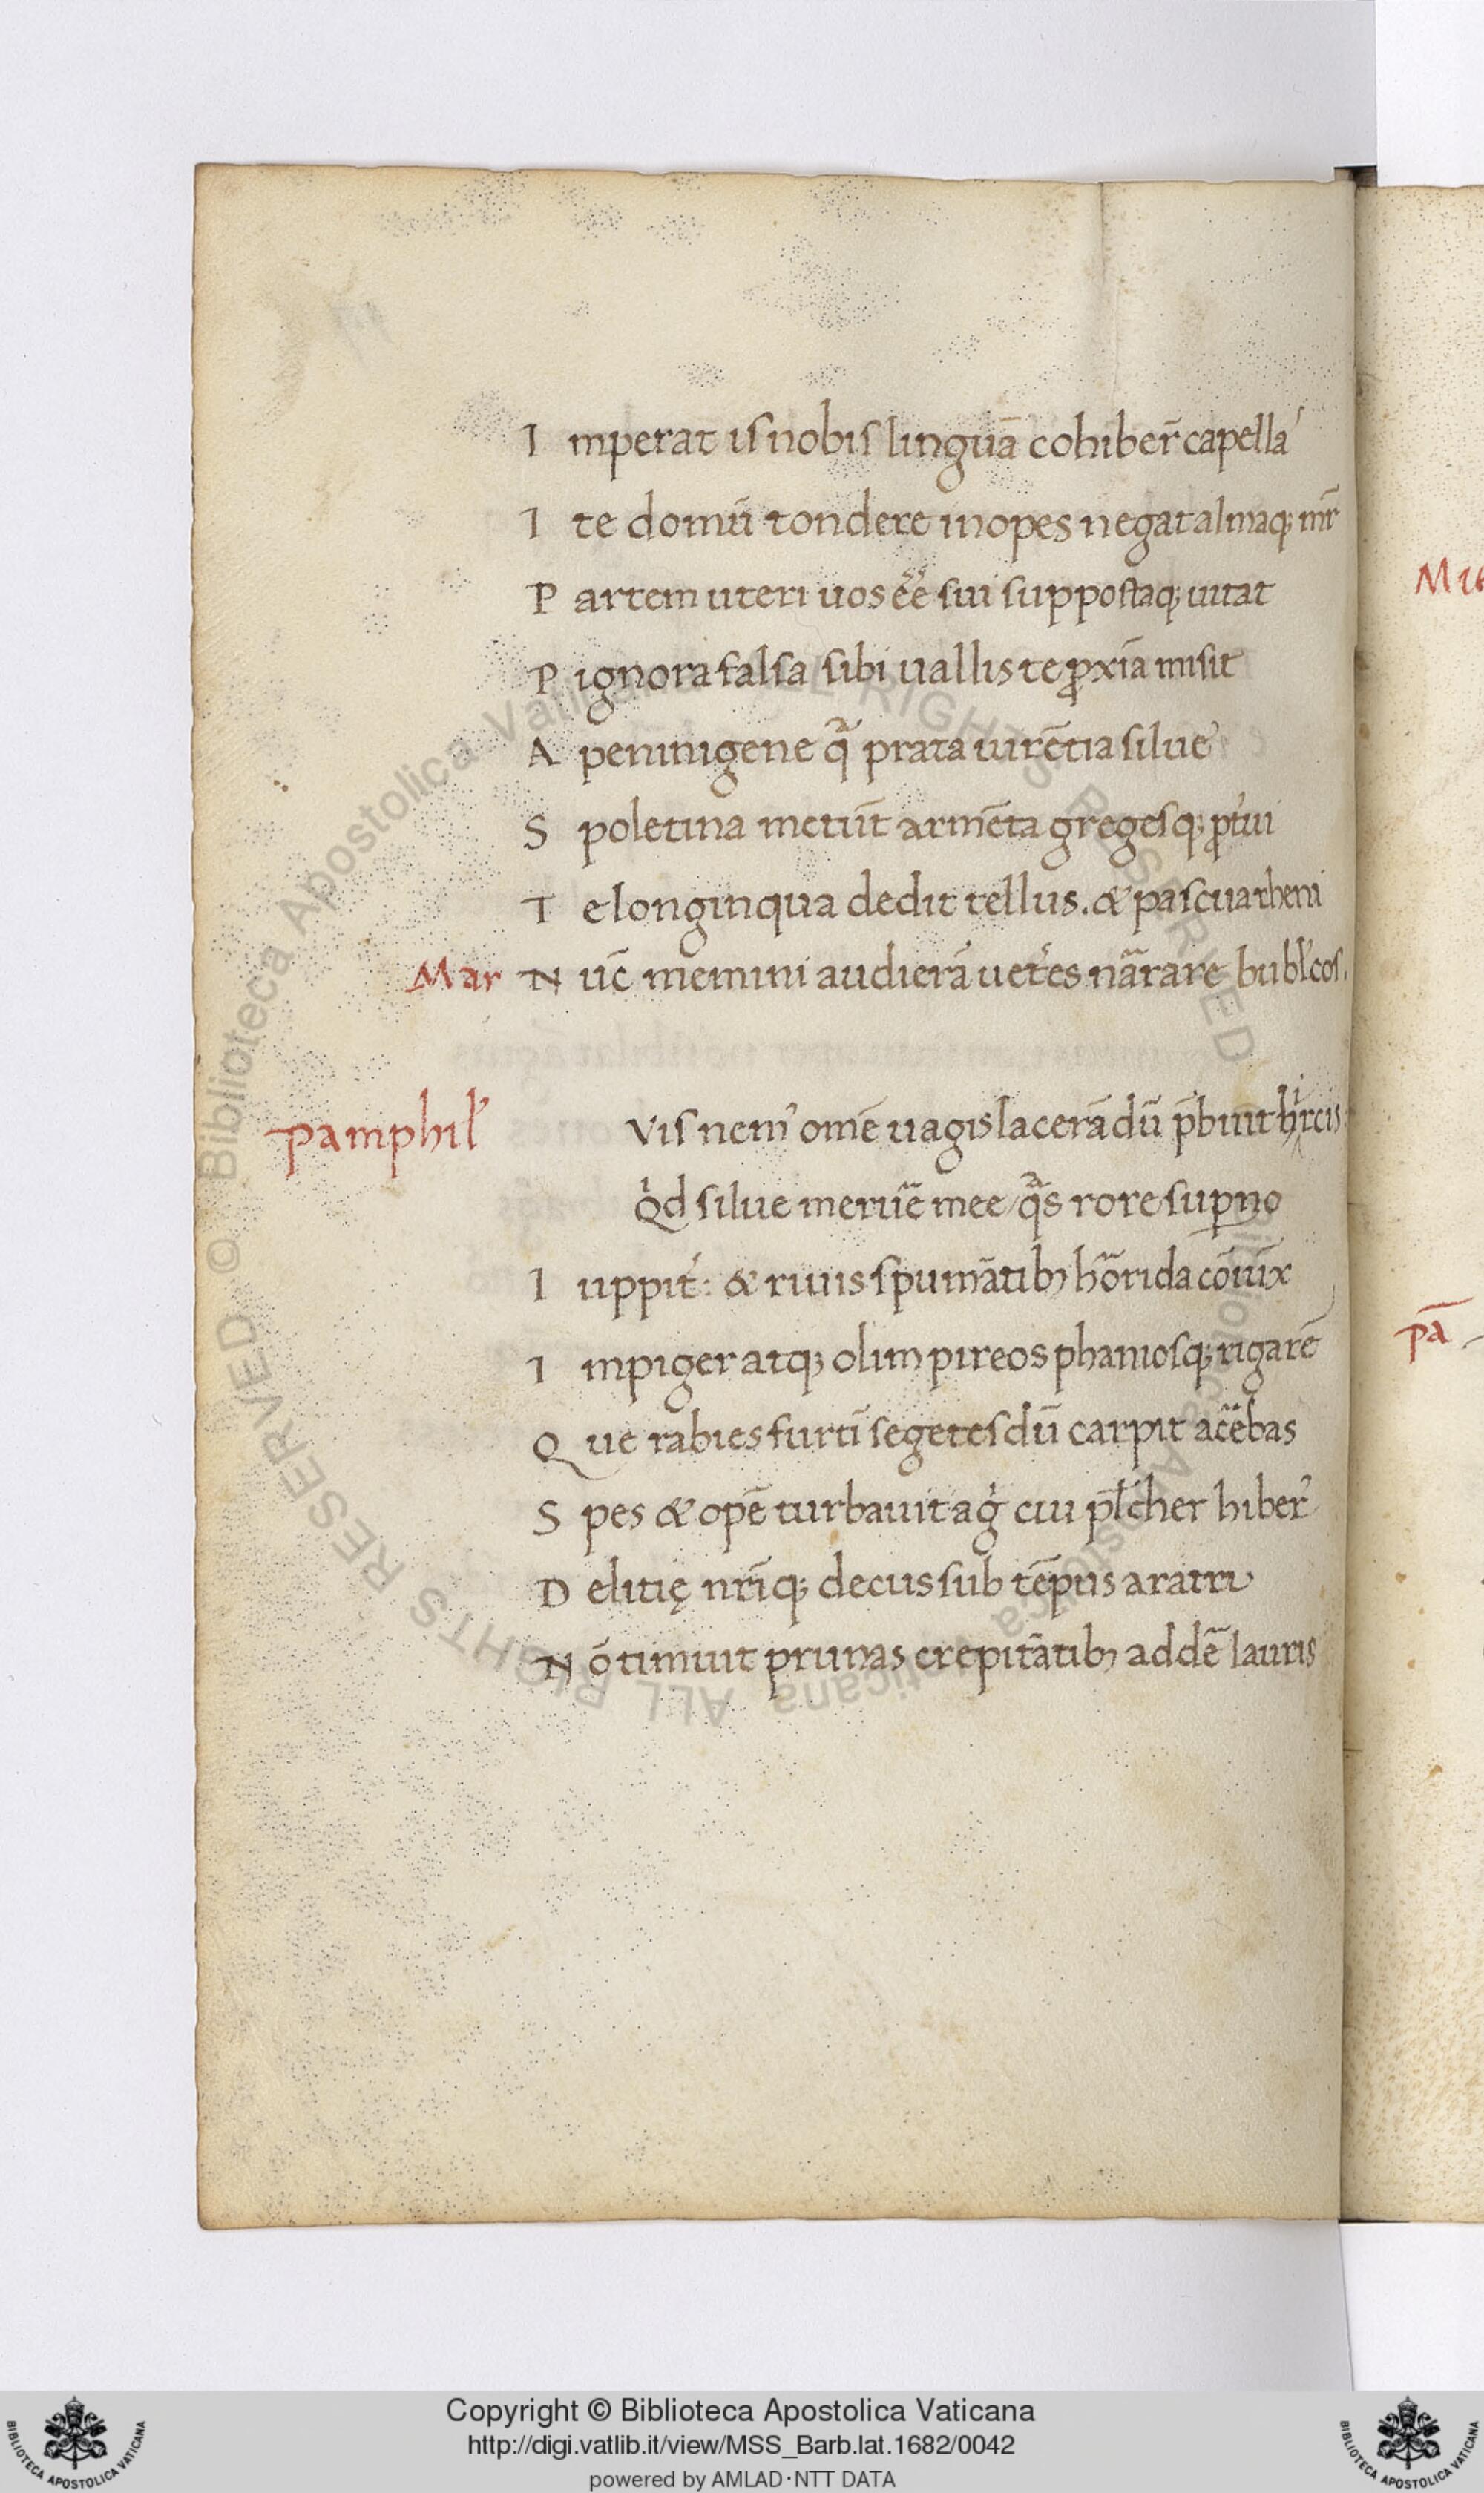 I mperat is nobis linguā cohiber̄ capella᾽
I te domū tondere inopes negat almaq; mr̄
P artem uteri uos ēē sui suppostaq; uitat
P ignora falsa sibi uallis te ꝓxīa misit
A penninigene qͣ prata uirētia silue
S poletina metūt armēta gregesq; ꝓt᾽ui
T e longinqua dedit tellus. & pascua rheni
Mar N uc̄ memini audierā uet᾽es nārare bubl᾽cos.
Mi
Pamphil᾽ Vis nem᾽ omē uagis lacerādū p̄buit hircis
Qͥd silue meruē mee/ qͣs rore suꝑno
I uppit᾽: & riuis spumātibꝫ hōrida cōiūx
pā
I mpiger atq; olim pireos phamosq; rigarē
Q ue rabies furtī segetes dū carpit ac̄ebas
S pes & opē turbauit agͥ cui pl̄cher hiber᾽
D elitię nr̄iq; decus sub tēpus aratri
N ō timuit prunas crepitātibꝫ addē lauris
Copyright © Biblioteca Apostolica Vaticana
http://digi.vatlib.it/view/MSS_Barb.lat.1682/0042
powered by AMLAD·NTT DATA
BIBLIOTECA APOSTOLICA VATICANA
BIBLIOTECA APOSTOLICA VATICANA
© Biblioteca Apostolica Vaticana ALL RIGHTS RESERVED
© Biblioteca Apostolica Vaticana ALL RIGHTS RESERVED